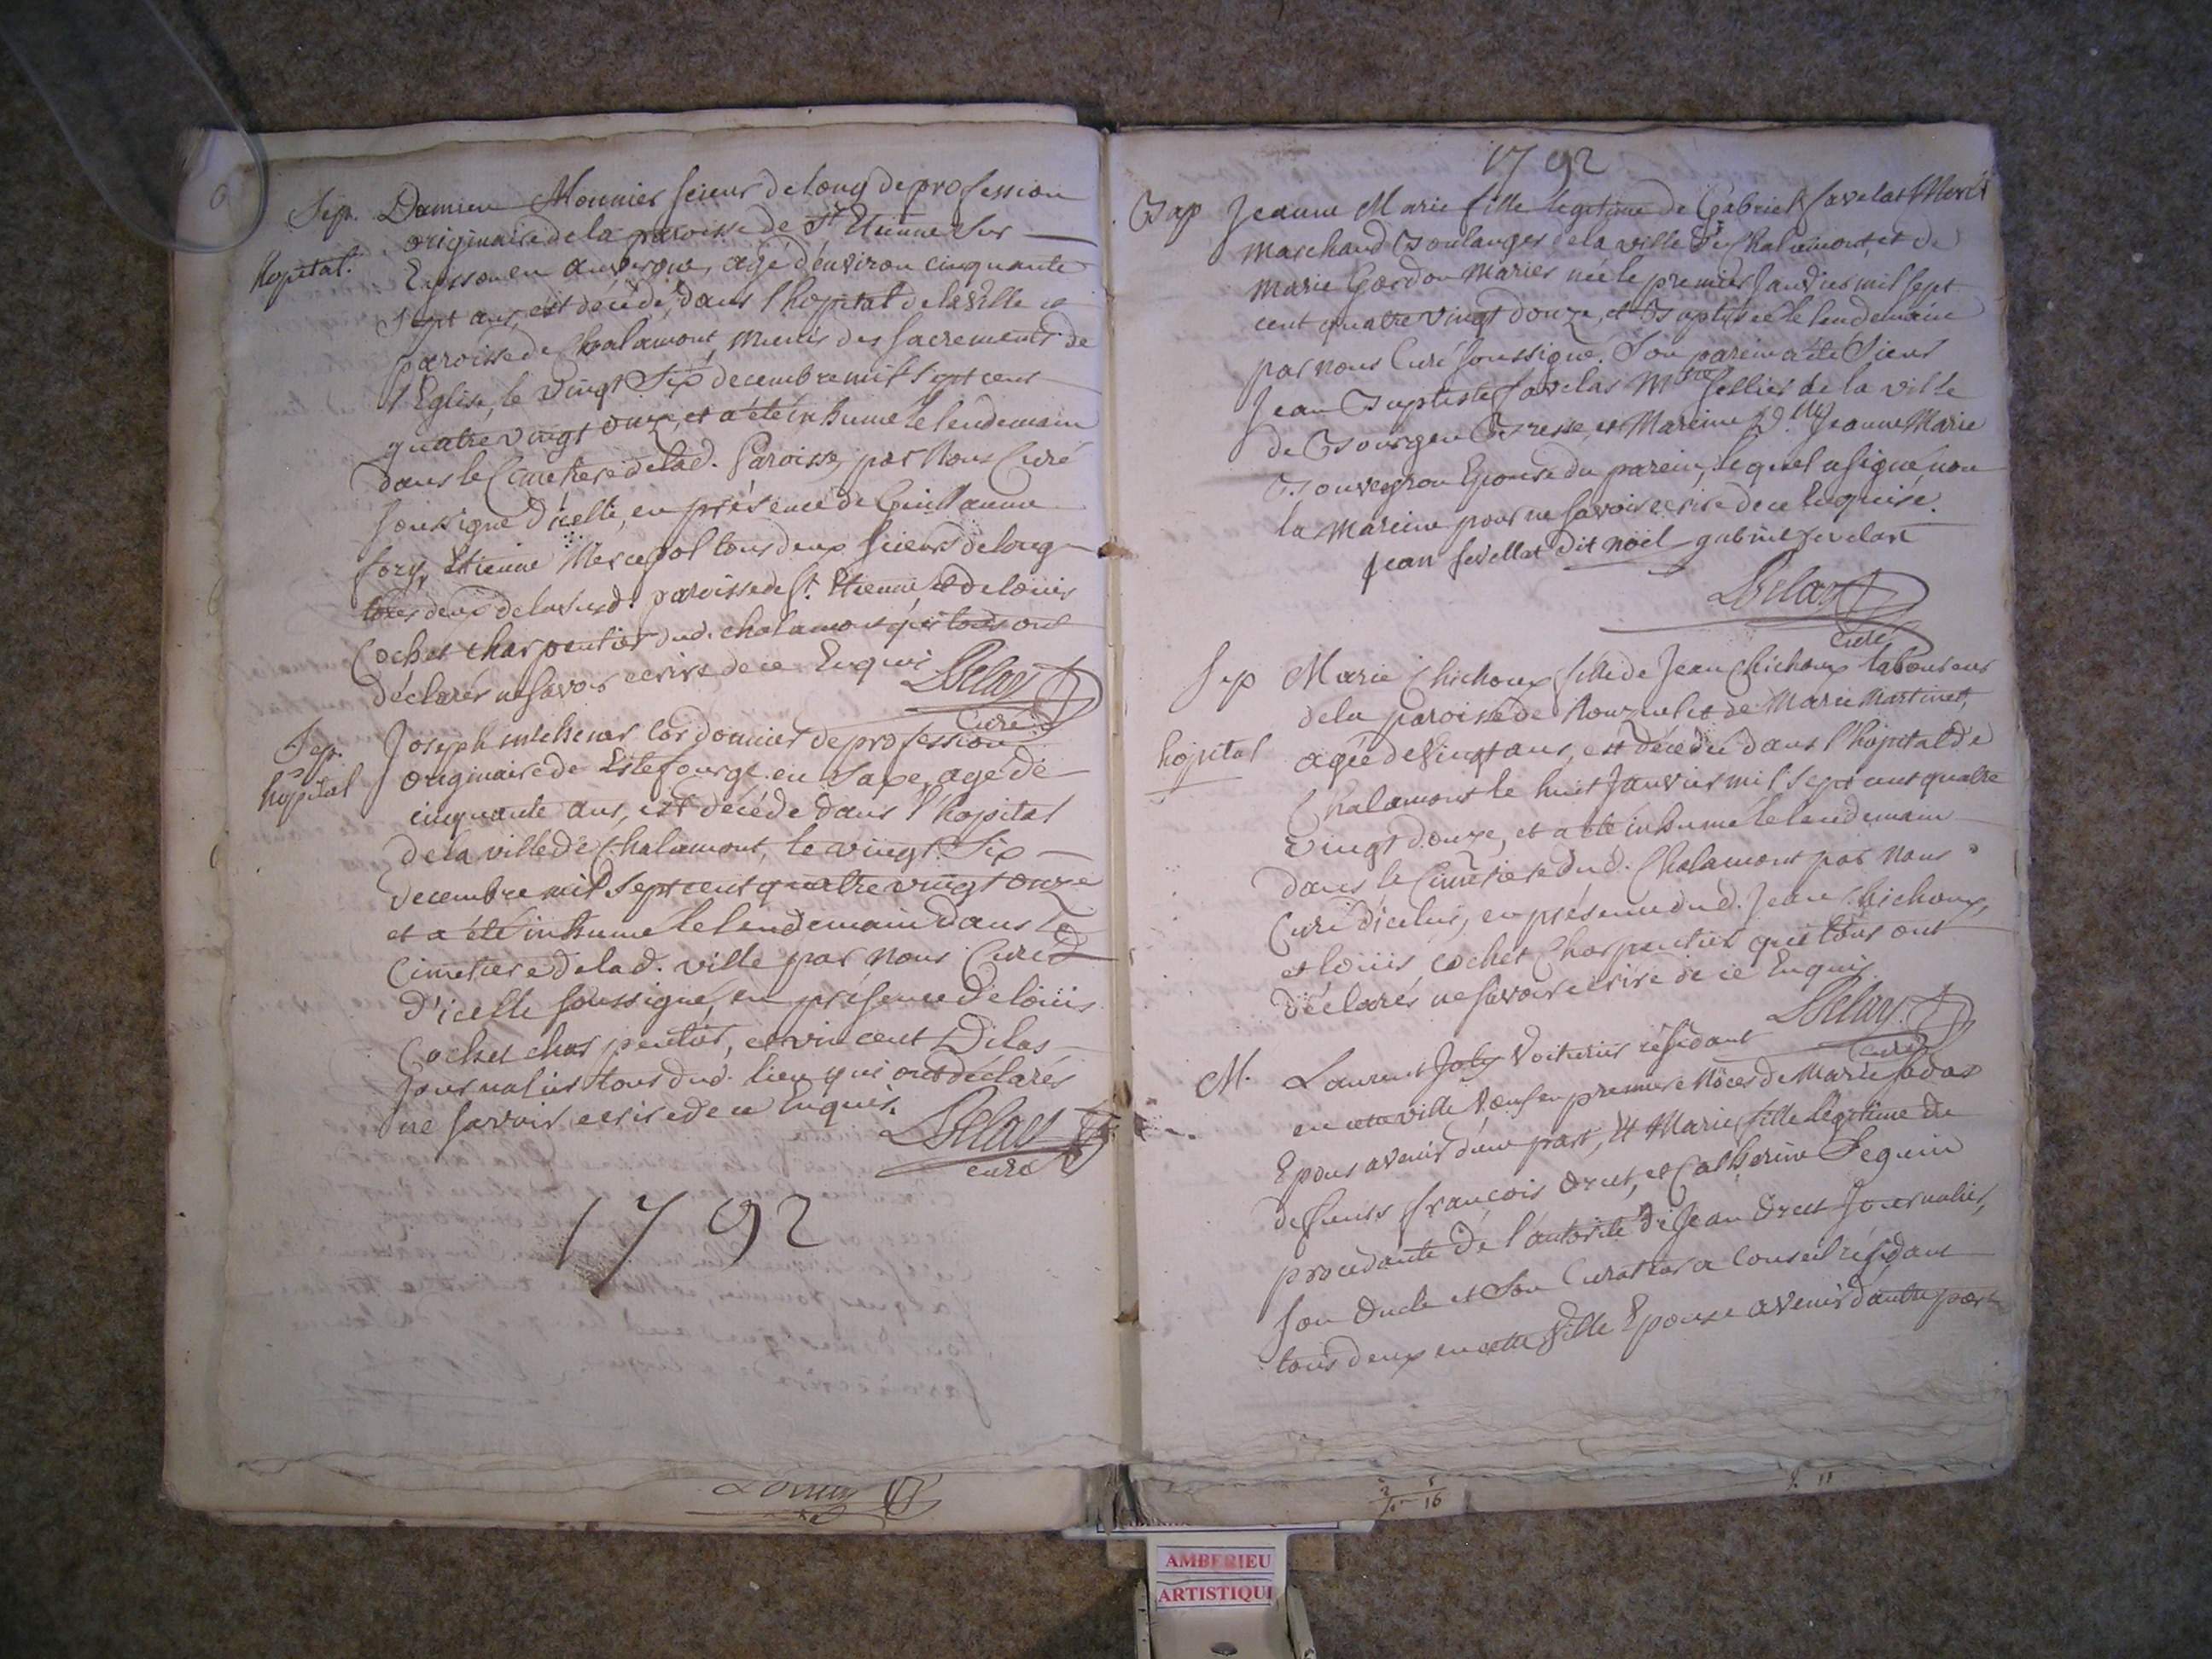 Sep. Damien Monnier scieur de long de profession
originaire de la paroisse de St Etienne sur
hopital. en auvergne, agé d'environ cinquante
sept ans, est décédé dans l'hopital de la ville et
paroisse de Chalamont, munis des sacrements de
l'Eglise, le vingt six decembre mil sept cent
quatre vingt onze, et a été inhumé le lendemain
dans le Cimetiere de lad. Paroisse, par nous Curé
soussigné d'icelle, en présence de Guillaume
fory, Etienne tous deux scieurs de long
tous deux de la susd. paroisse de St. Etienne, et de loüis
Cochet charpentier dud. chalamont qui tous ont
déclarés ne savoir ecrire de ce Enquis
Curé
Sep. Joseph cordonnier de profession
hopital originaire de en Saxe, agé de
cinquante ans, est décédé dans l'hopital
de la ville de Chalamont, le vingt Six
decembre mil sept cent quatre vingt onze
et a été inhumé le lendemain dans le
Cimetiere de lad. ville par nous Curé
d'icelle soussigné, en présence de loüis
Cochet charpentier, et vincent Dilas
Journalier tous dud. lieu qui ont déclarés
ne savoir ecrire de ce Enquis.
curé
1792
1792
Bap Jeanne Marie fille legitime de Gabriel favelat
marchand Boulanger de la ville de Chalamont, et de
marie Gordon mariés née le premier Janvier mil sept
cent quatre vingt douze, et Baptisée le lendemain
par nous Curé soussigné. Son parein a été Sieur
Jean Baptiste favelas Mtre sellier de la ville
de Bourg en Bresse, et Mareine Dlle Jeanne Marie
Bouveyron Epouse du parein, lequel a signé, non
la Mareine pour ne savoir ecrire de ce Enquise.
Jean fevellat dit noël gabriel fevelas
Curé
Sep Marie Chichoux fille de Jean Chichoux laboureur
de la paroisse de et de Marie Martinet,
hopital agée de vingt ans, est décédée dans l'hopital de
Chalamont le huit Janvier mil sept cent quatre
vingt douze, et a été inhumé le lendemain
dans le Cimetiere dud. Chalamont par nous
Curé d'icelui, en présence dud. Jean Chichoux,
et loüis cochet Charpentier qui tous ont
déclarés ne savoir ecrire de ce Enquis
curé
M. Laurent Joly Voiturier résidant
en cette ville veuf en premiere nôces de Marie
Epoux avenir d'une part, Et Marie fille legitime de
defunts françois Brut, et Catherine Seguin
procédante de l'autorité de Jean Brut Journalier,
son Oncle et son Curateur a Conseil résidant
tous deux en cette ville Epouse avenir d'autre part
5
16
AMBERIEU
ARTISTIQU